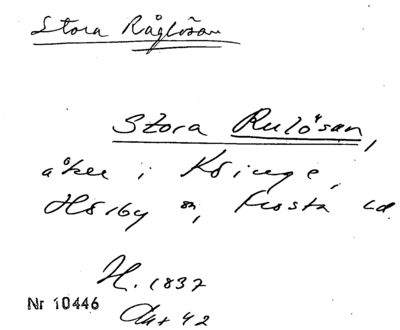 Stora Råglösan
Stora Rulösan,
åker i Köinge,
Hörby sn, Frosta hd
H. 1837
Akt 42
Nr 10446